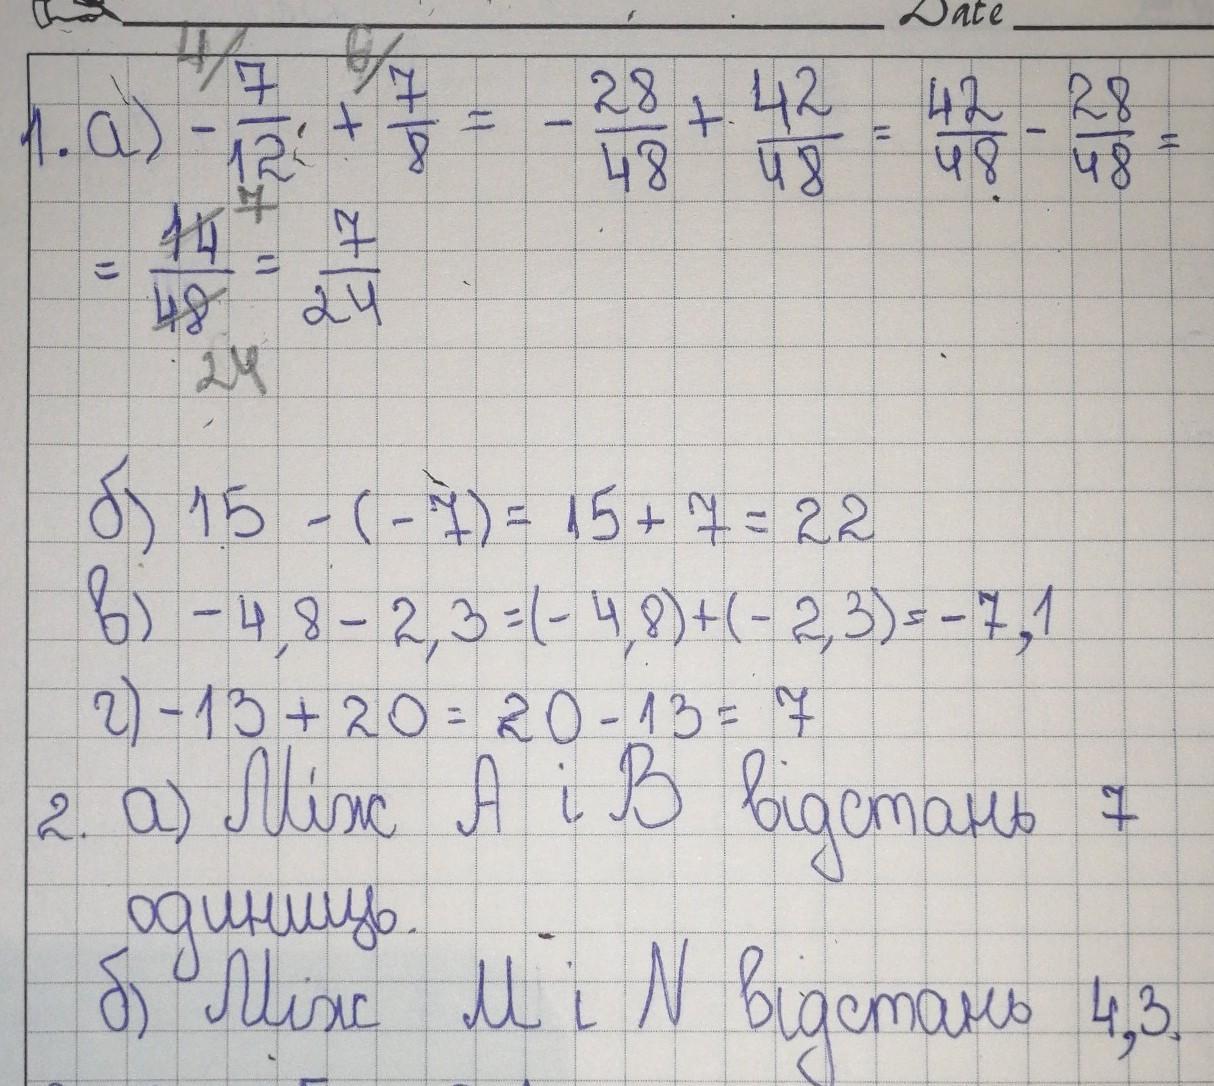 Date
4/ 6/
1. а) - 7/12 + 7/8 = - 28/48 + 42/48 = 42/48 - 28/48 =
= 14/48 = 7/24
7
24
б) 15 - (-7) = 15 + 7 = 22
в) - 4,8 - 2,3 = (- 4,8) + (- 2,3) = - 7,1
г) - 13 + 20 = 20 - 13 = 7
2. а) Між А і В відстань 7
одиниць.
б) Між M і N відстань 4,3.